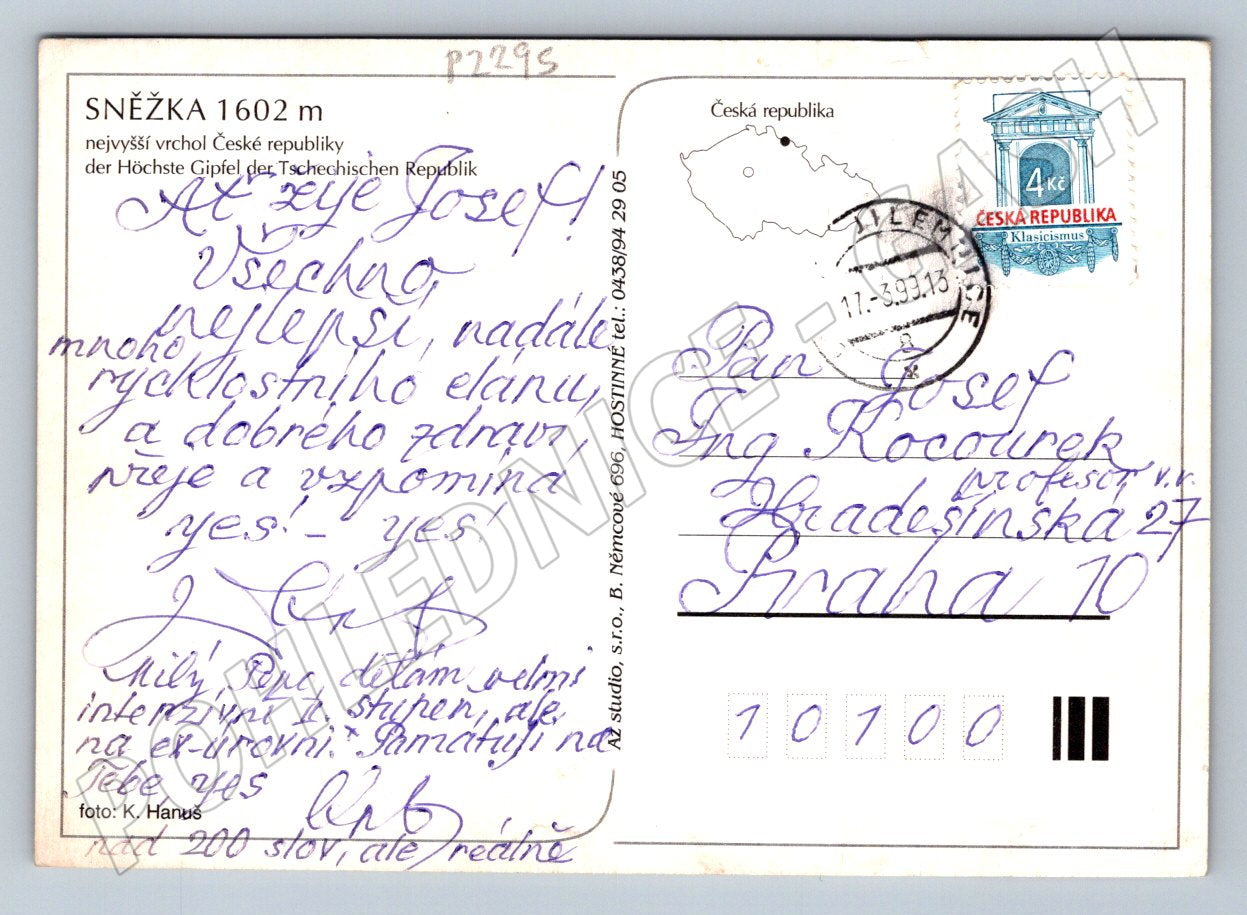 P229S
SNĚŽKA 1602 m
nejvyšší vrchol České republiky
der Höchste Gipfel der Tschechischen Republik
Ať žije Josef!
Všechno
nejlepší, nadále
mnoho
rycklostního elánu,
a dobrého zdraví,
přeje a vzpomíná
yes! - yes!
Milý Pepo, dělám velmi
intenzivní II. stupen, ale
na ex-úrovni. Pamatuji na
Tebe, yes
foto: K. Hanuš
nad 200 slov, ale reálně
AZ studio, s.r.o., B. Němcové 696, HOSTINNÉ tel.: 0438/94 29 05
Česká republika
4 Kč
ČESKÁ REPUBLIKA
Klasicismus
JILEMNICE
17.-3.99.13
Pan Josef
Ing Kocourek
profesor v.v.
Hradešínská 27
Praha 10
10100
POHLEDNICE - CASH